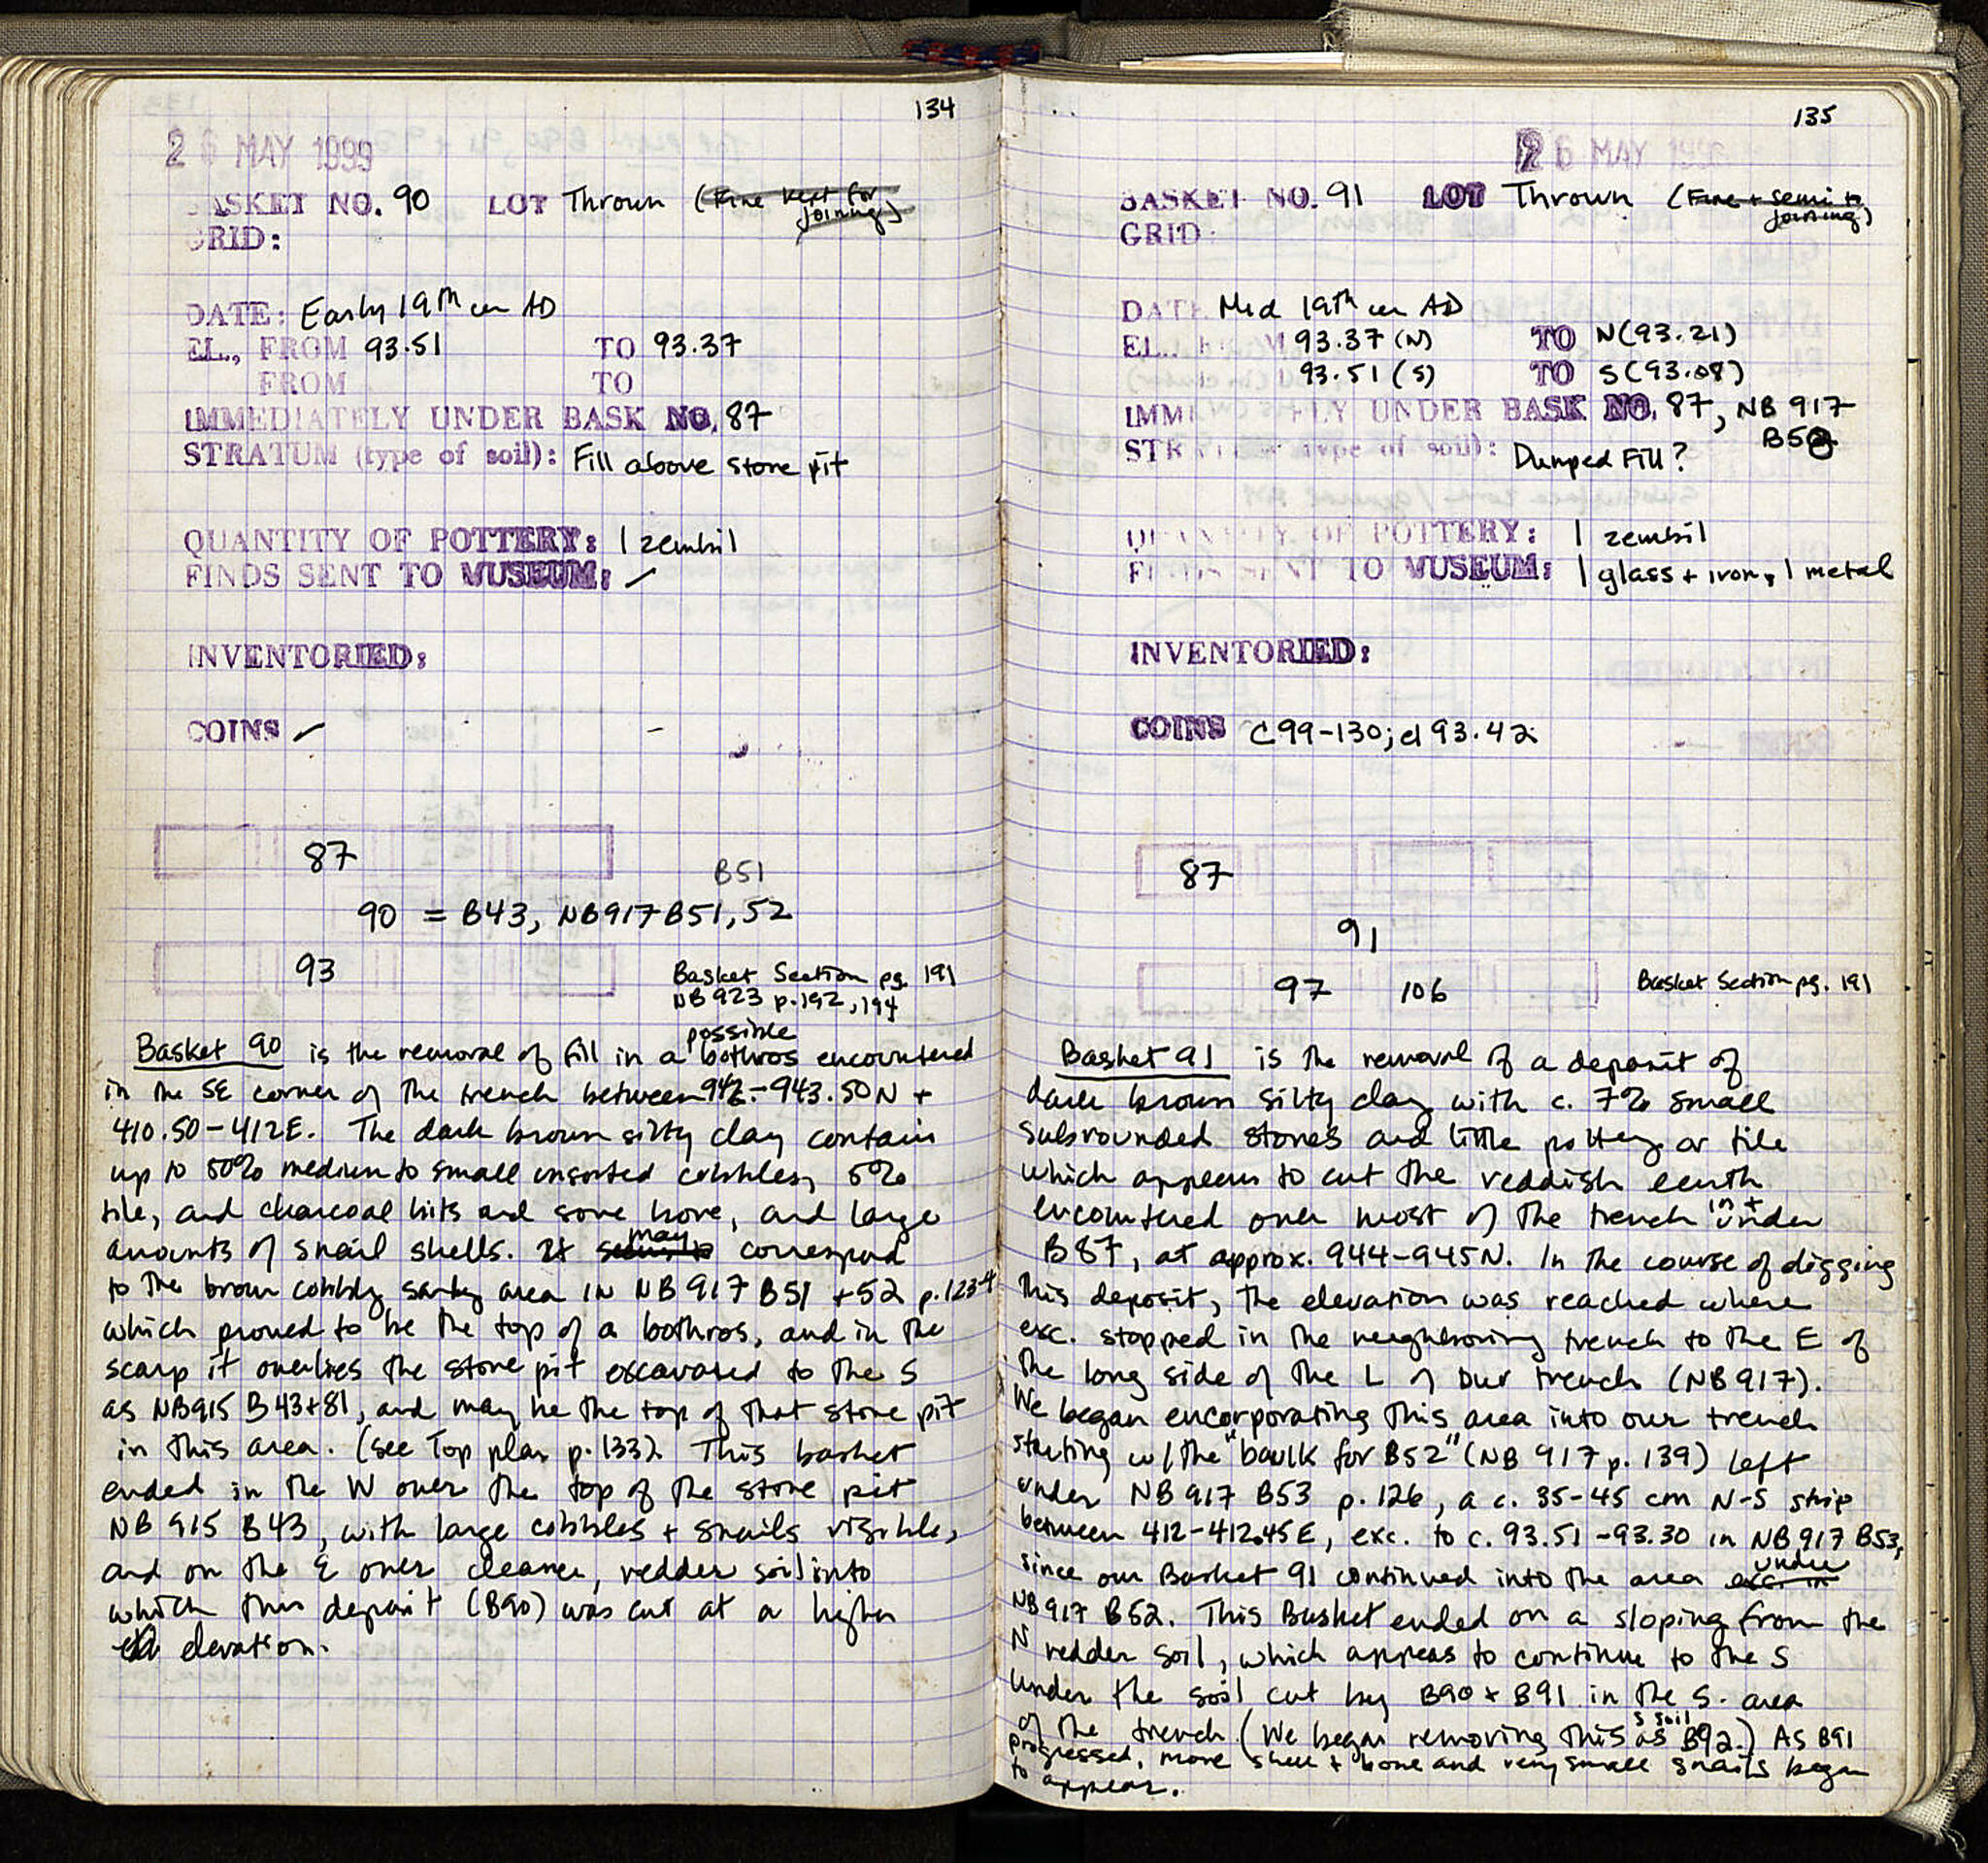 134
26 MAY 1999
BASKET NO. 90 LOT Thrown (Fine kept for
joining)
GRID:
DATE: Early 19th cen AD
EL., FROM 93.51 TO 93.37
FROM TO
IMMEDIATELY UNDER BASK NO. 87
STRATUM (type of soil): Fill above stone pit
QUANTITY OF POTTERY: 1 zembil
FINDS SENT TO MUSEUM: –
INVENTORIED:
COINS –
87
B51
90 = B43, NB917 B51, 52
93
Basket Section pg. 191
NB 923 p.192, 194
possible
Basket 90 is the removal of fill in a bothros encountered
in the SE corner of the trench between 942.-943.50N +
410.50-412E. The dark brown silty clay contain
up to 50% medium to small unsorted cobbles, 5%
tile, and charcoal bits and some bone, and large
may
amounts of snail shells. It seems to correspond
to the brown cobbly sandy area in NB 917 B51 +52 p.123-4
which proved to be the top of a bothros, and in the
scarp it overlies the stone pit excavated to the S
as NB915 B43+81, and may be the top of that stone pit
in this area. (see Top plan p.133). This basket
ended in the W over the top of the stone pit
NB 915 B43, with large cobbles + snails visible,
and on the E over cleaner, redder soil into
which this deposit (B90) was cut at a higher
elevation.
135
26 MAY 1999
BASKET NO. 91 LOT Thrown (Fine + semi to
joining)
GRID
DATE Mid 19th cen AD
EL., FROM 93.37 (N) TO N(93.21)
93.51 (S) TO S(93.08)
IMMEDIATELY UNDER BASK NO. 87, NB 917
B52
STRATUM (type of soil): Dumped Fill?
QUANTITY OF POTTERY: 1 zembil
FINDS SENT TO MUSEUM: 1 glass + iron, 1 metal
INVENTORIED:
COINS C99-130; el 93.42
87
91
97 106
Basket Section pg. 191
Basket 91 is the removal of a deposit of
dark brown silty clay with c. 7% small
subrounded stones and little pottery or tile
which appears to cut the reddish earth
in +
encountered over most of the trench under
B87, at approx. 944-945N. In the course of digging
this deposit, the elevation was reached where
exc. stopped in the neighboring trench to the E of
the long side of the L of our trench (NB 917).
We began encorporating this area into our trench
starting w/the "baulk for B52" (NB 917 p. 139) left
under NB 917 B53 p. 126, a c. 35-45 cm N-S strip
between 412-412.45E, exc. to c. 93.51-93.30 in NB 917 B53,
under
since our Basket 91 continued into the area exc. in
NB 917 B52. This Basket ended on a sloping from the
N redder soil, which appears to continue to the S
under the soil cut by B90 + B91 in the S. area
S soil
of the trench (We began removing this as B92.) As B91
progressed, more shell + bone and very small snails began
to appear.